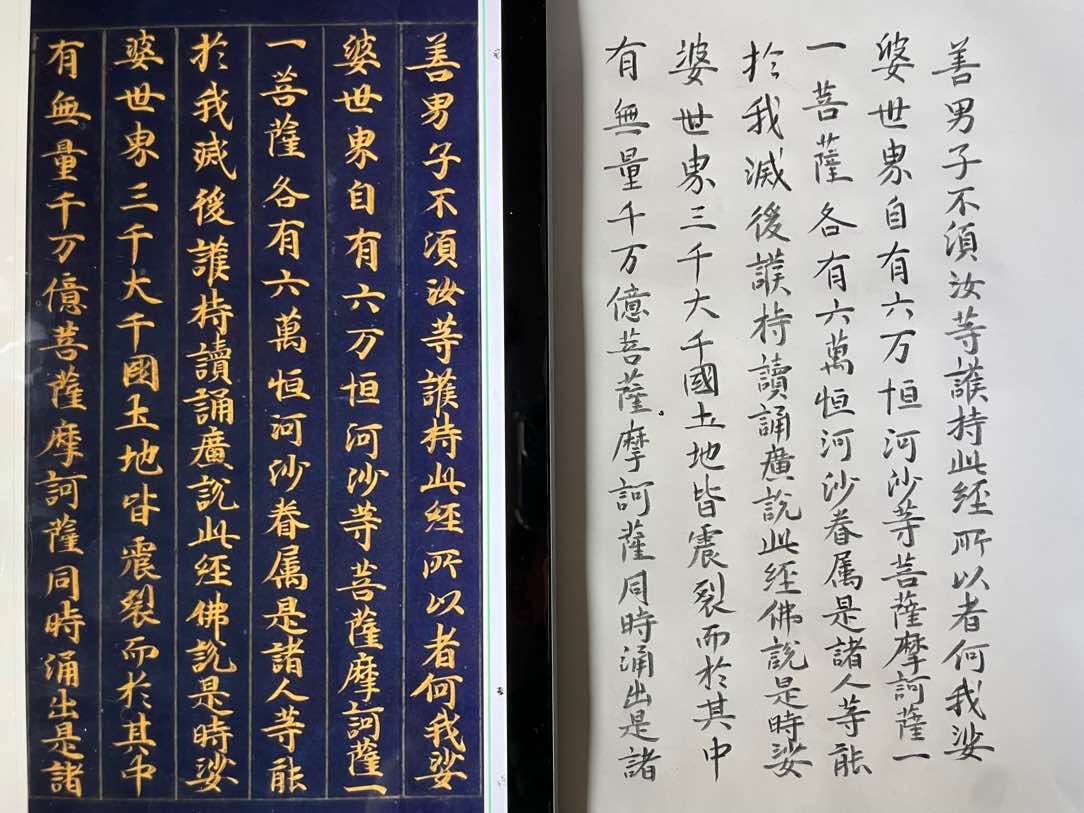 善男子不須汝等護持此経所以者何我娑
婆世界自有六万恒河沙等菩薩摩訶薩一
一菩薩各有六萬恒河沙眷属是諸人等能
於我滅後護持讀誦廣說此経佛說是時娑
婆世界三千大千國土地皆震裂而於其中
有無量千万億菩薩摩訶薩同時涌出是諸
善男子不須汝等護持此経所以者何我娑
婆世界自有六万恒河沙等菩薩摩訶薩一
一菩薩各有六萬恒河沙眷属是諸人等能
於我滅後護持讀誦廣說此経佛說是時娑
婆世界三千大千國土地皆震裂而於其中
有無量千万億菩薩摩訶薩同時涌出是諸